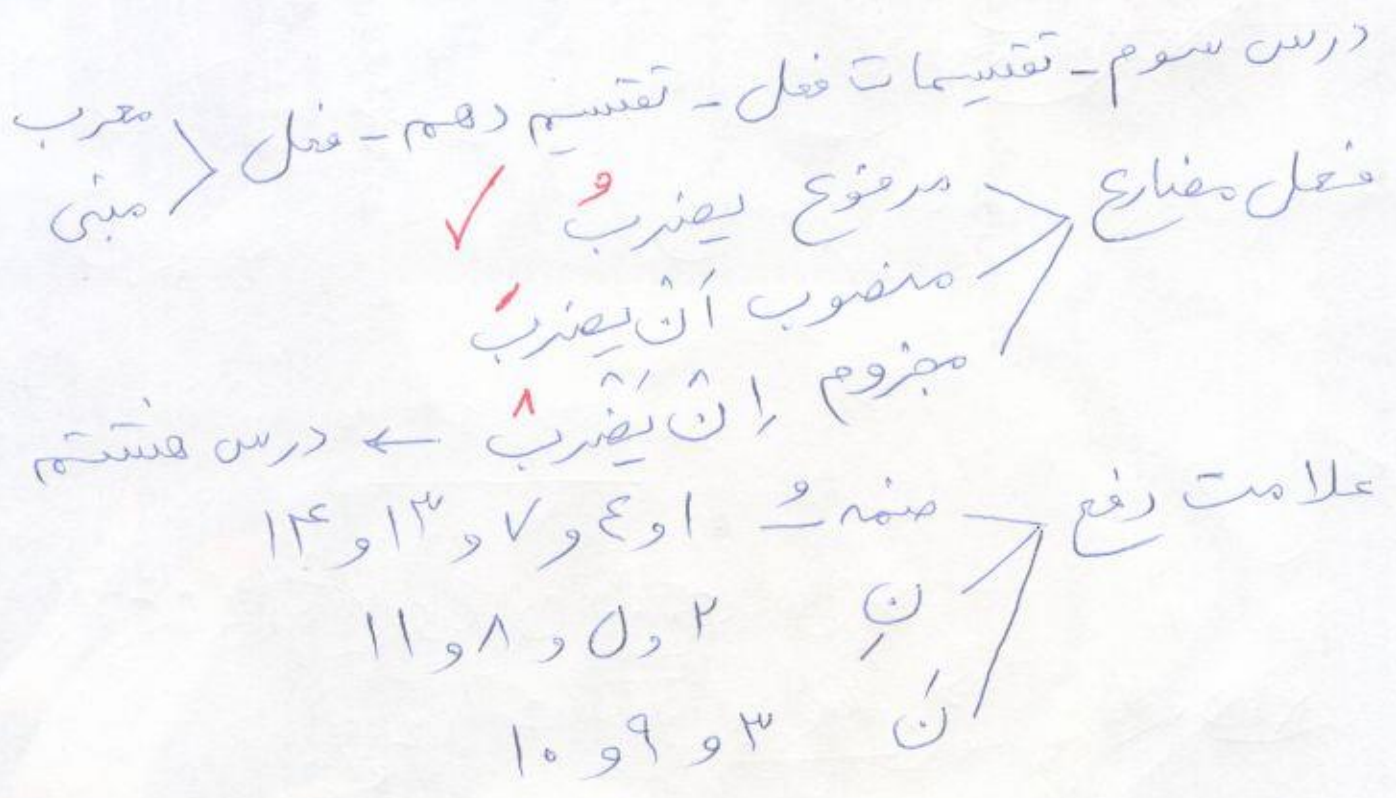 درس سوم - تقسیمات فعل - تقسیم دهم - فعل معرب
مبنی
فعل مضارع مرفوع یضربُ
منصوب اَنْ یضربَ
مجزوم اِنْ یَضْربْ ← درس هشتم
علامت رفع ضمه ـُ ۱ و ٤ و ۷ و ۱۳ و ۱۴
نِ ۲ و ۵ و ۸ و ۱۱
نَ ۳ و ۹ و ۱۰